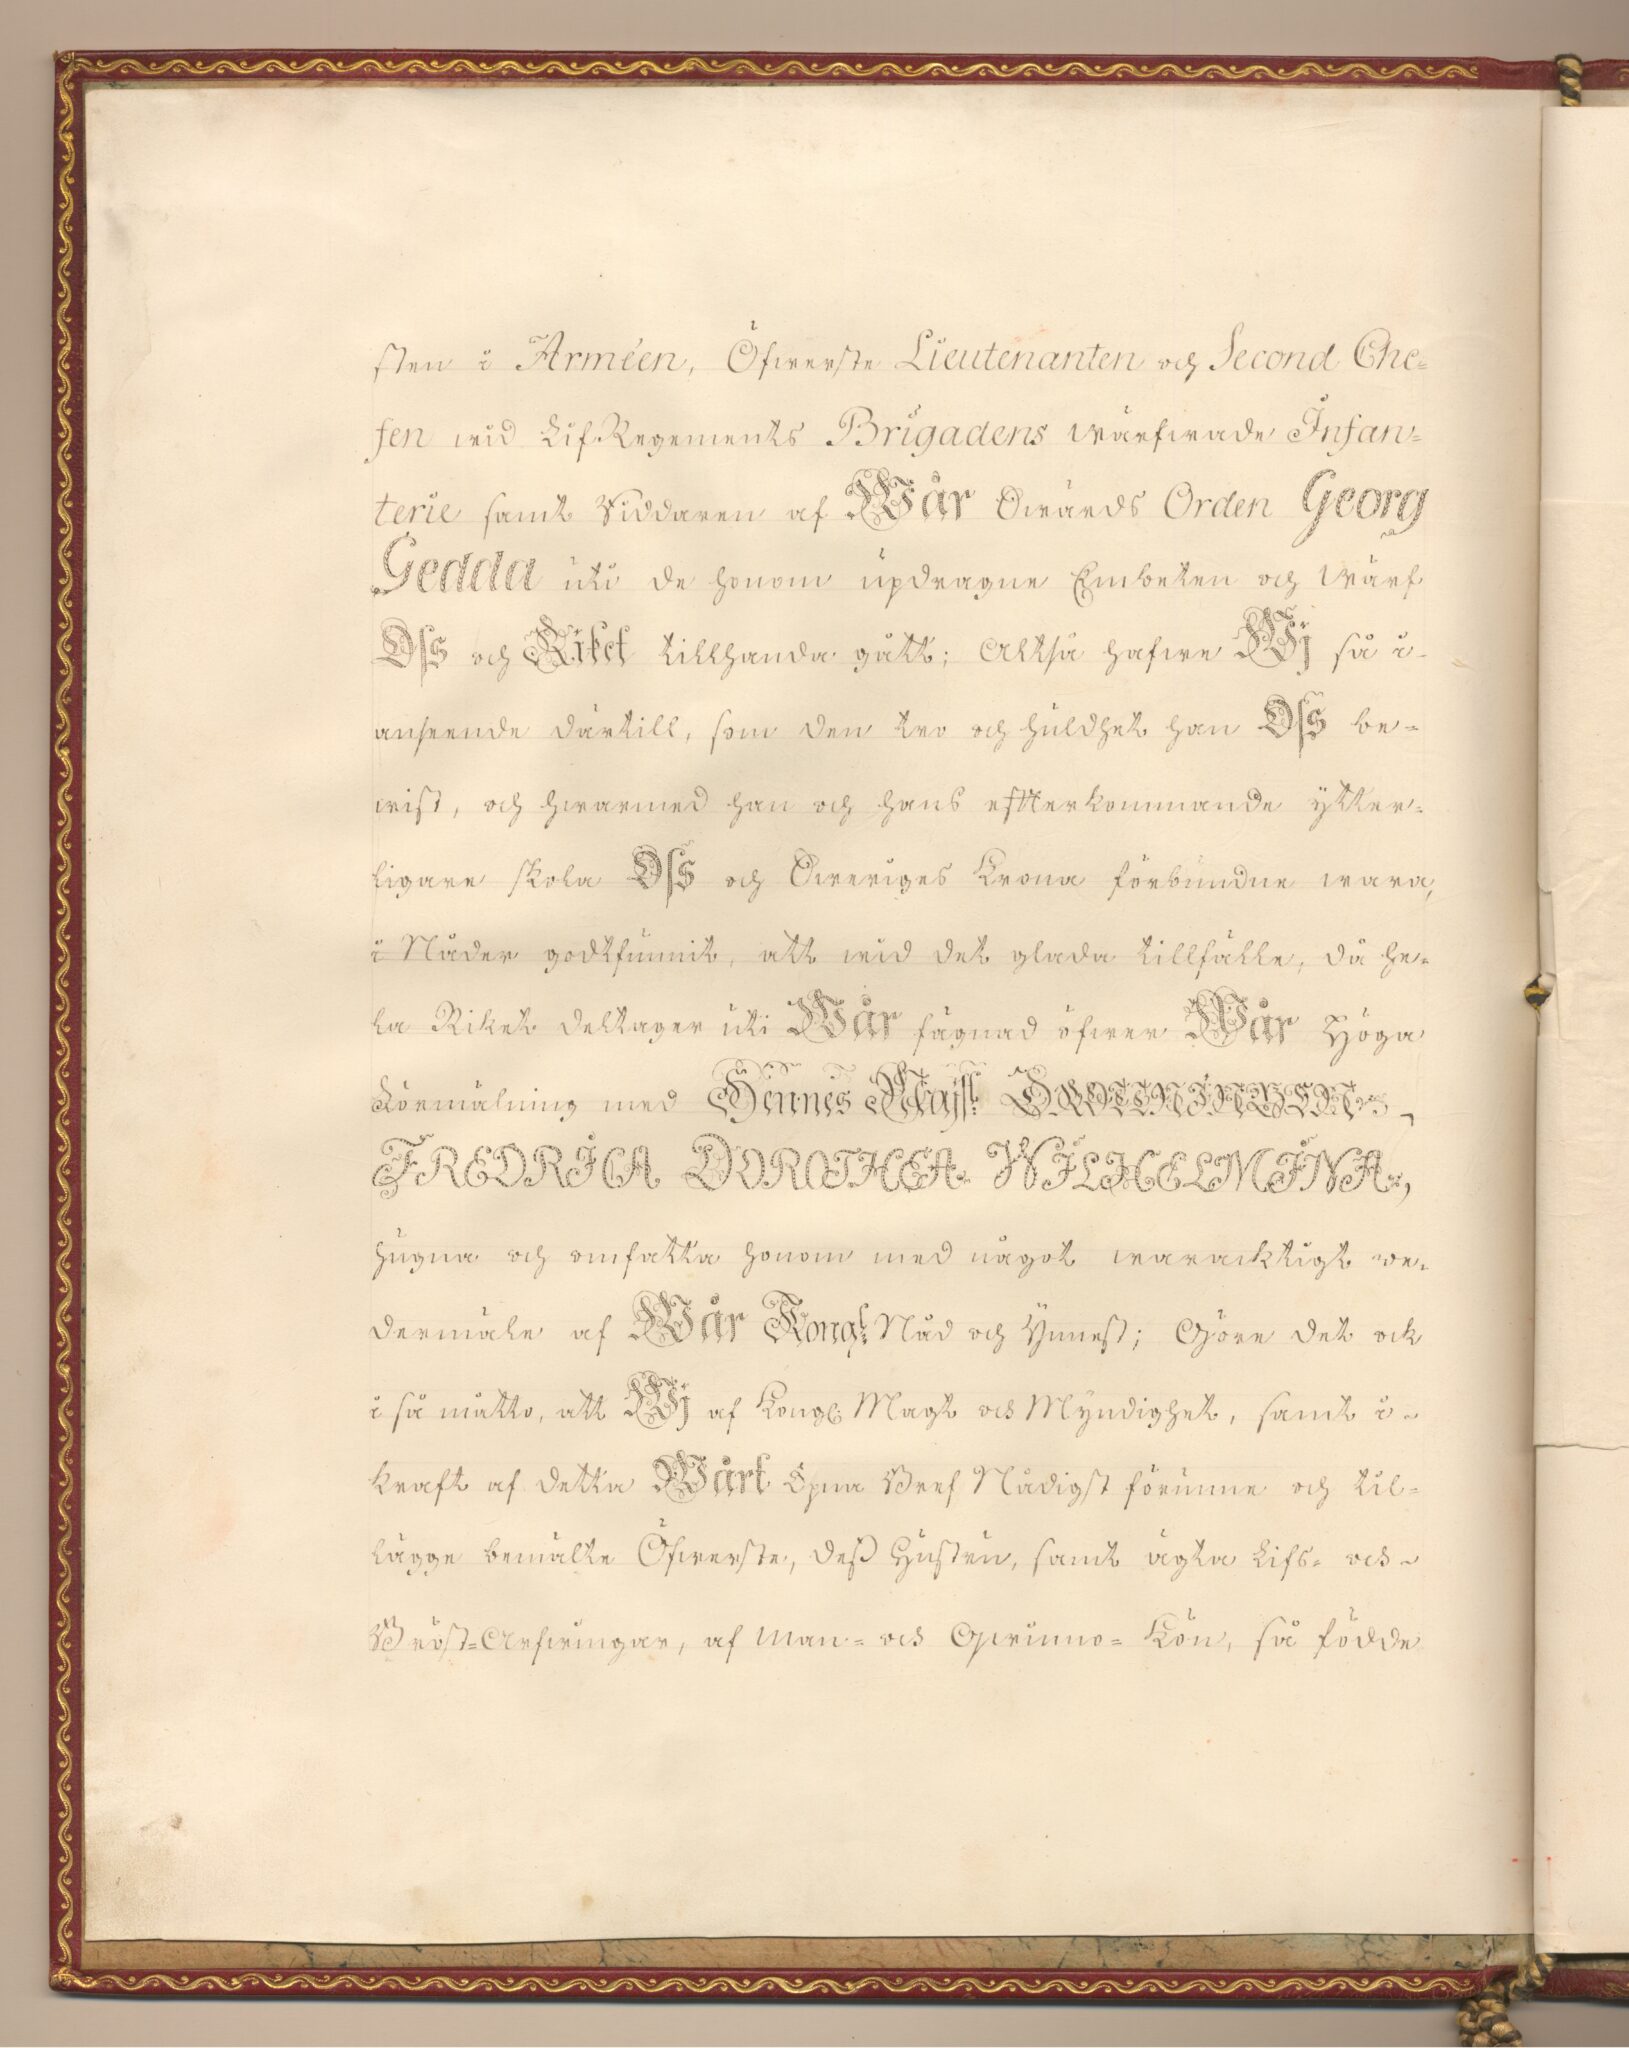 sten i Arméen, Öfwerste Lieutenanten och Second Che=
fen wid Lif-Regements Brigadens wärfwade Infan=
terie samt Riddaren af Wår Swärds Orden Georg
Gedda uti de honom updragne Embeten och wärf
Oss och Riket tillhanda gått; Altså hafwe Wj så i
anseende därtill, som den tro och huldhet han Oss be=
wist, och hwarmed han och hans efterkommande ytter=
ligare skola Oss och Sweriges Krona förbundne wara,
i Nåder godtfunnit, att wid det glada tillfälle, då he=
la Riket deltager uti Wår fägnad öfwer Wår Höga
Förmälning med Hennes Majst: DROTTNINGEN
FREDRICA DOROTHEA WILHELMINA,
hugna och omfatta honom med något waracktigt we=
dermäle af Wår Kongl: Nåd och Ynnest; Göre det ock
i så måtto, att Wj af Kongl: Magt och Myndighet, samt i
kraft af detta Wårt Öpna Bref Nådigst förunne och til=
lägge bemälte Öfwerste, deß Hustru, samt ägta Lifs= och
Bröst=Arfwingar, af Man= och Qwinno= Kön, så födde